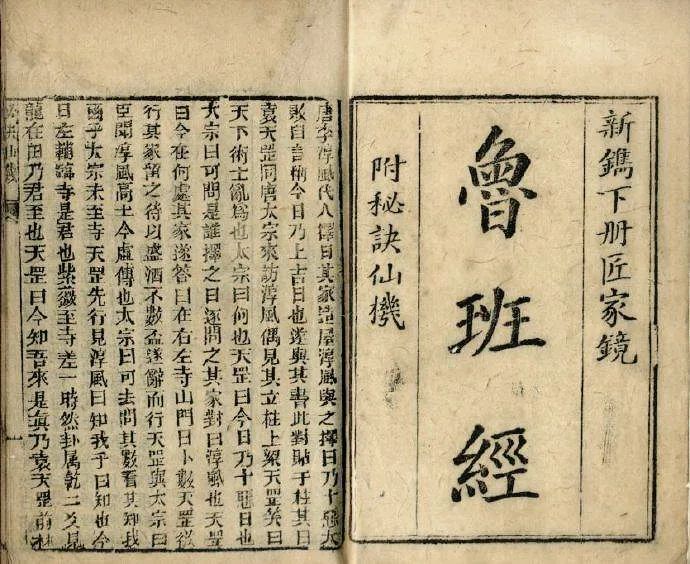 新鐫下册匠家鏡
魯班經
附秘訣仙機
唐李淳風代人擇日其家造屋淳風與之擇日乃十惡大
敗自昔稱今日乃上吉日也遂與其書此對貼于柱其日
袁天罡同唐太宗來訪淳風偶見其立柱上梁天罡笑曰
天下術士亂為也太宗曰何也天罡曰今日乃十惡日也
太宗曰可問是誰擇之日遂問之其家對曰淳風也天罡
曰今在何處其家遂答曰在右左寺山門日卜數天罡
行其家留之待以盛酒不數盃遂辭而行天罡與太宗曰
臣聞淳風高士今虛傳也太宗曰可去問其數看其知我
兩乎太宗未至寺天罡先行見淳風曰知我乎曰知也今
日左輔臨寺是君也紫薇至寺差一時然卦屬乾二爻見
龍在田乃君至也天罡曰今知吾來是真乃袁天罡前